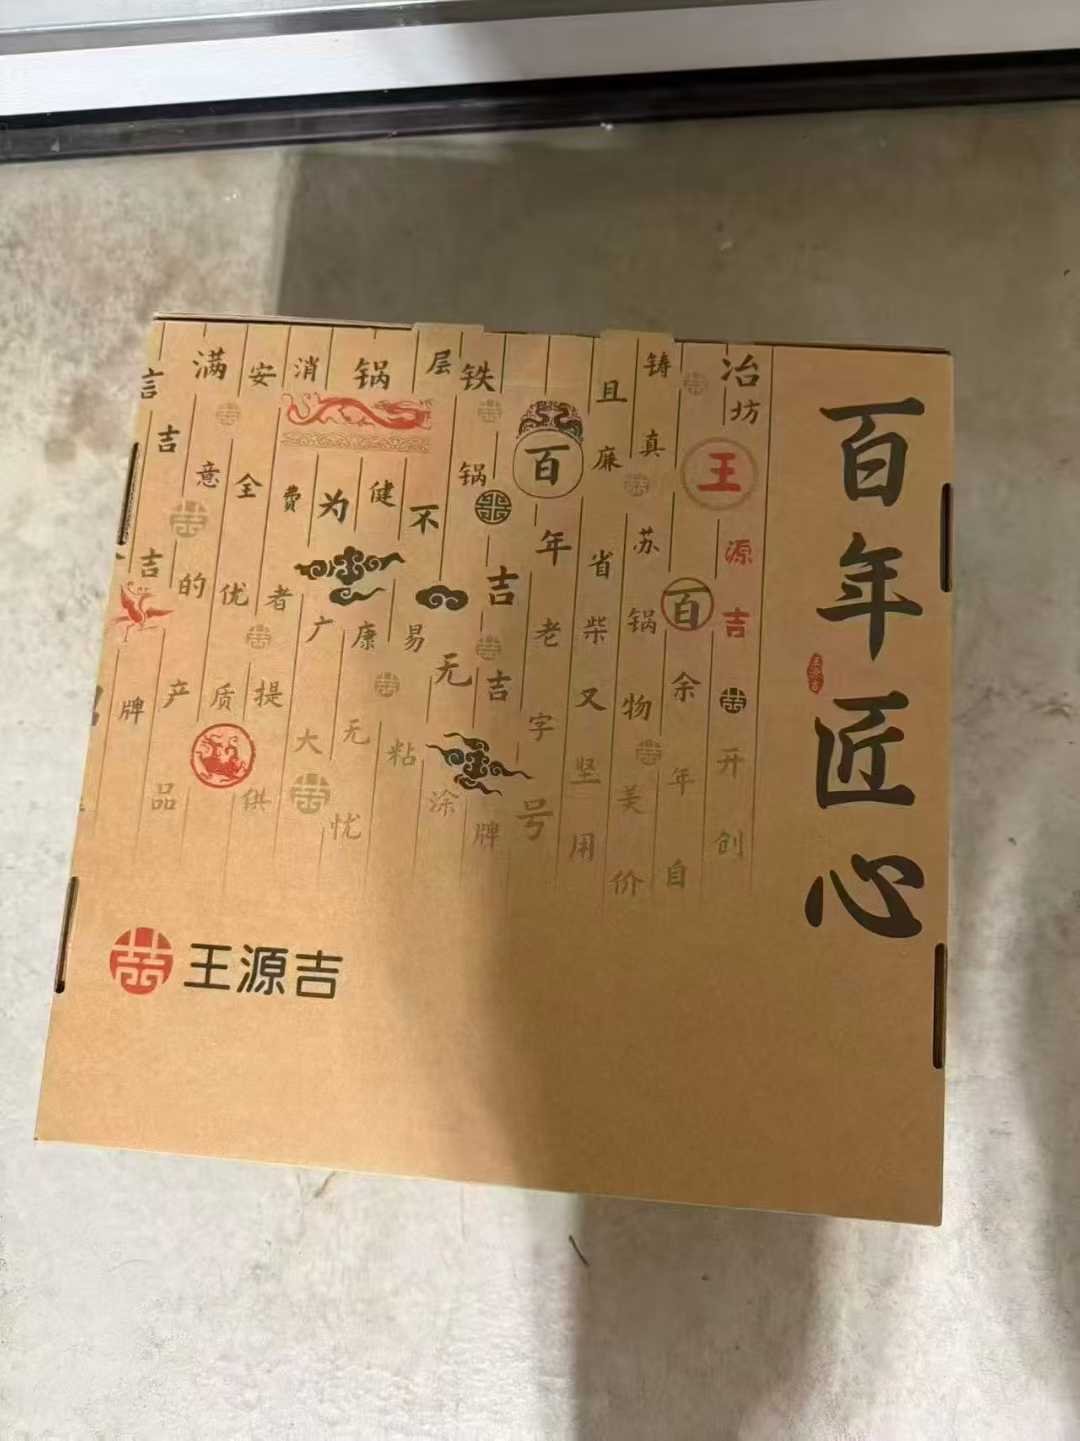 百年匠心
王源吉
冶坊王源吉开创
百余年自
铸真苏锅物美价
且廉省柴又坚用
百年老字号
铁锅吉吉牌
无涂
层不易粘
锅健康无忧
为广大
消费者提供
安全优质
满意的产品
吉吉牌
王源吉